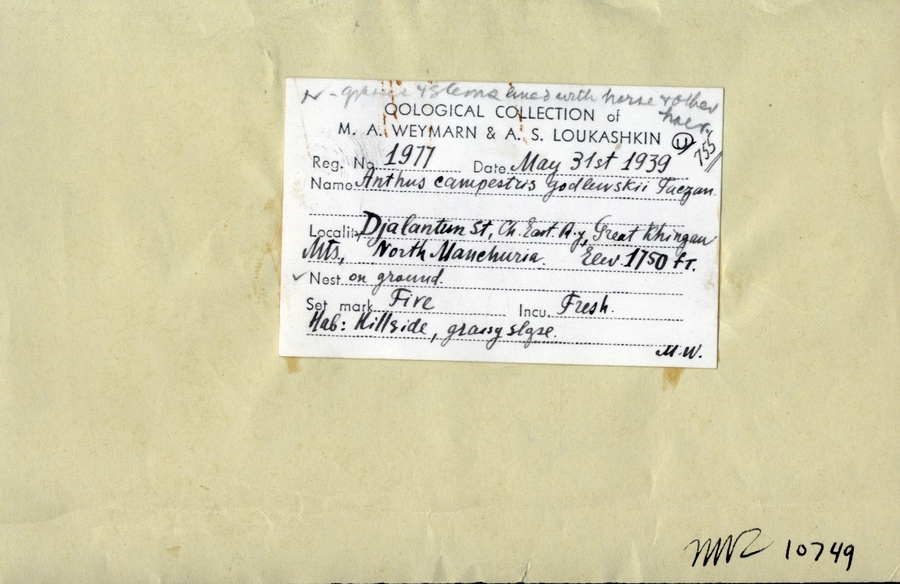 N- grasses & stems lined with horse & other
hair
OOLOGICAL COLLECTION of
M. A. WEYMARN & A. S. LOUKASHKIN
755
Reg. No. 1977 Date May 31st 1939
Name Anthus campestris godlewskii Taczan.
Locality Djalantun St, Ch. East. R.y, Great Khingan
Mts, North Manchuria. Elev. 1750 ft.
✓ Nest on ground.
Set mark Five Incu. Fresh.
Hab: Hillside, grassy slope.
M.W.
MVZ 10749